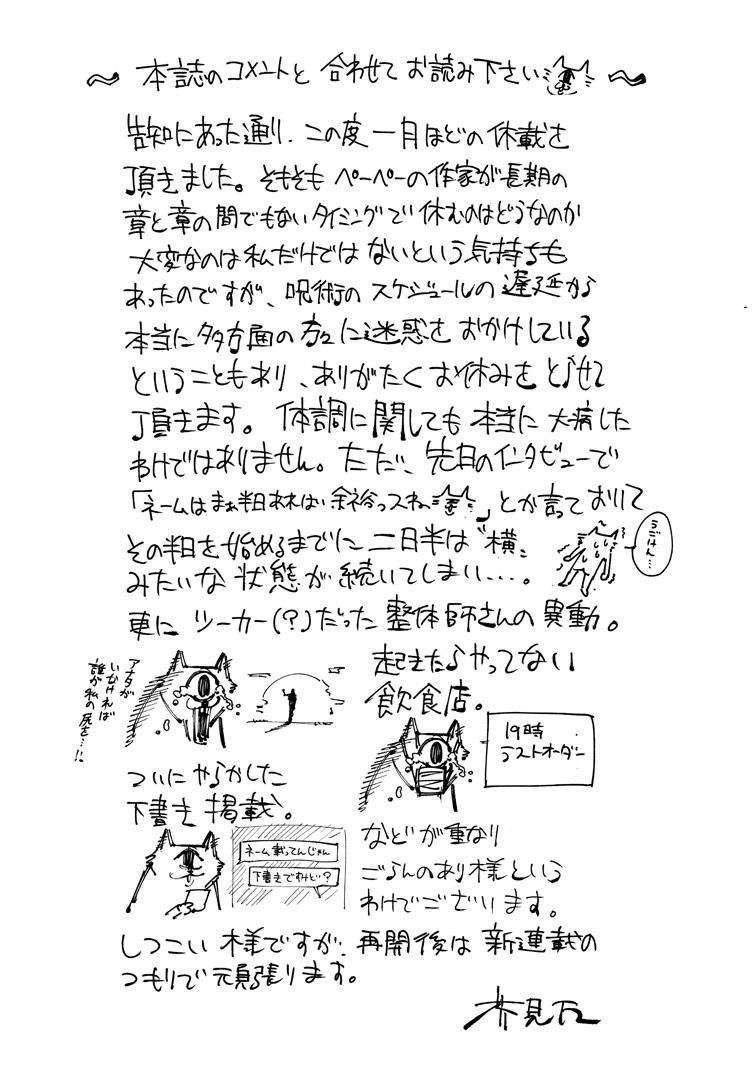 〜 本誌のコメントと 合わせて お読み下さい 〜
告知にあった通り、この度 一月ほどの休載を
頂きました。そもそも ペーペーの作家が長期の
章と章の間でもないタイミングで 休むのはどうなのか
大変なのは私だけでは ないという気持ちも
あったのですが、呪術の スケジュールの 遅延から
本当に多方面の方々に迷惑を おかけしている
ということもあり、ありがたく お休みを とらせて
頂きます。 体調に関しても 本当に 大病した
わけではありません。ただ、先日のインタビューで
「ネームはまぁ半日あれば 余裕っスね 」とか言って おいて
その半日を始めるまでに 二日半は〝横〟
みたいな 状態が 続いてしまい…。
うごけん…
更に ツーカー(?)だった 整体師さんの 異動。
アナタが
いなければ
誰が私の尻を…!!
起きたらやってない
飲食店。
19時
ラストオーダー
ついに やらかした
下書き 掲載。
ネーム載ってんじゃん
下書きですけど?
などが重なり
ごらんのあり様という
わけでございます。
しつこい 様ですが、再開後は 新連載の
つもりで 頑張ります。
芥見下々